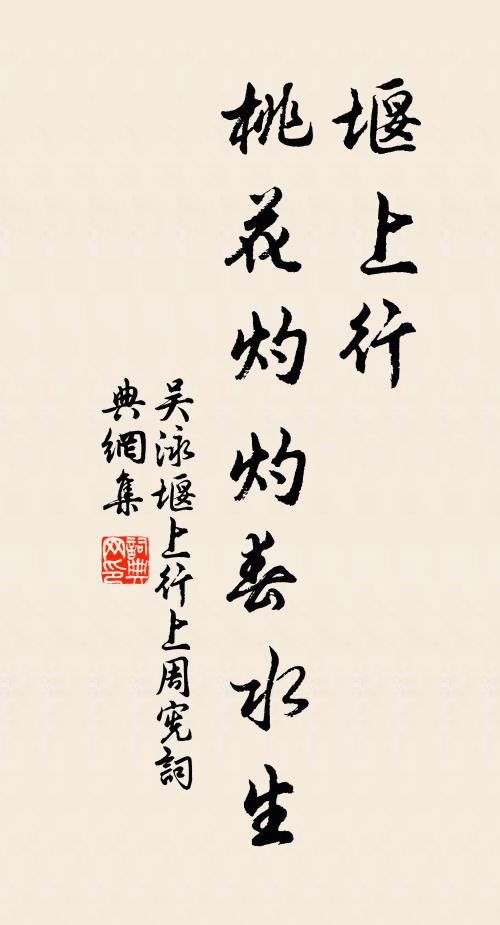 堰上行
桃花灼灼春水生
吴泳堰上行上周宪詞
典網集
詞典网印